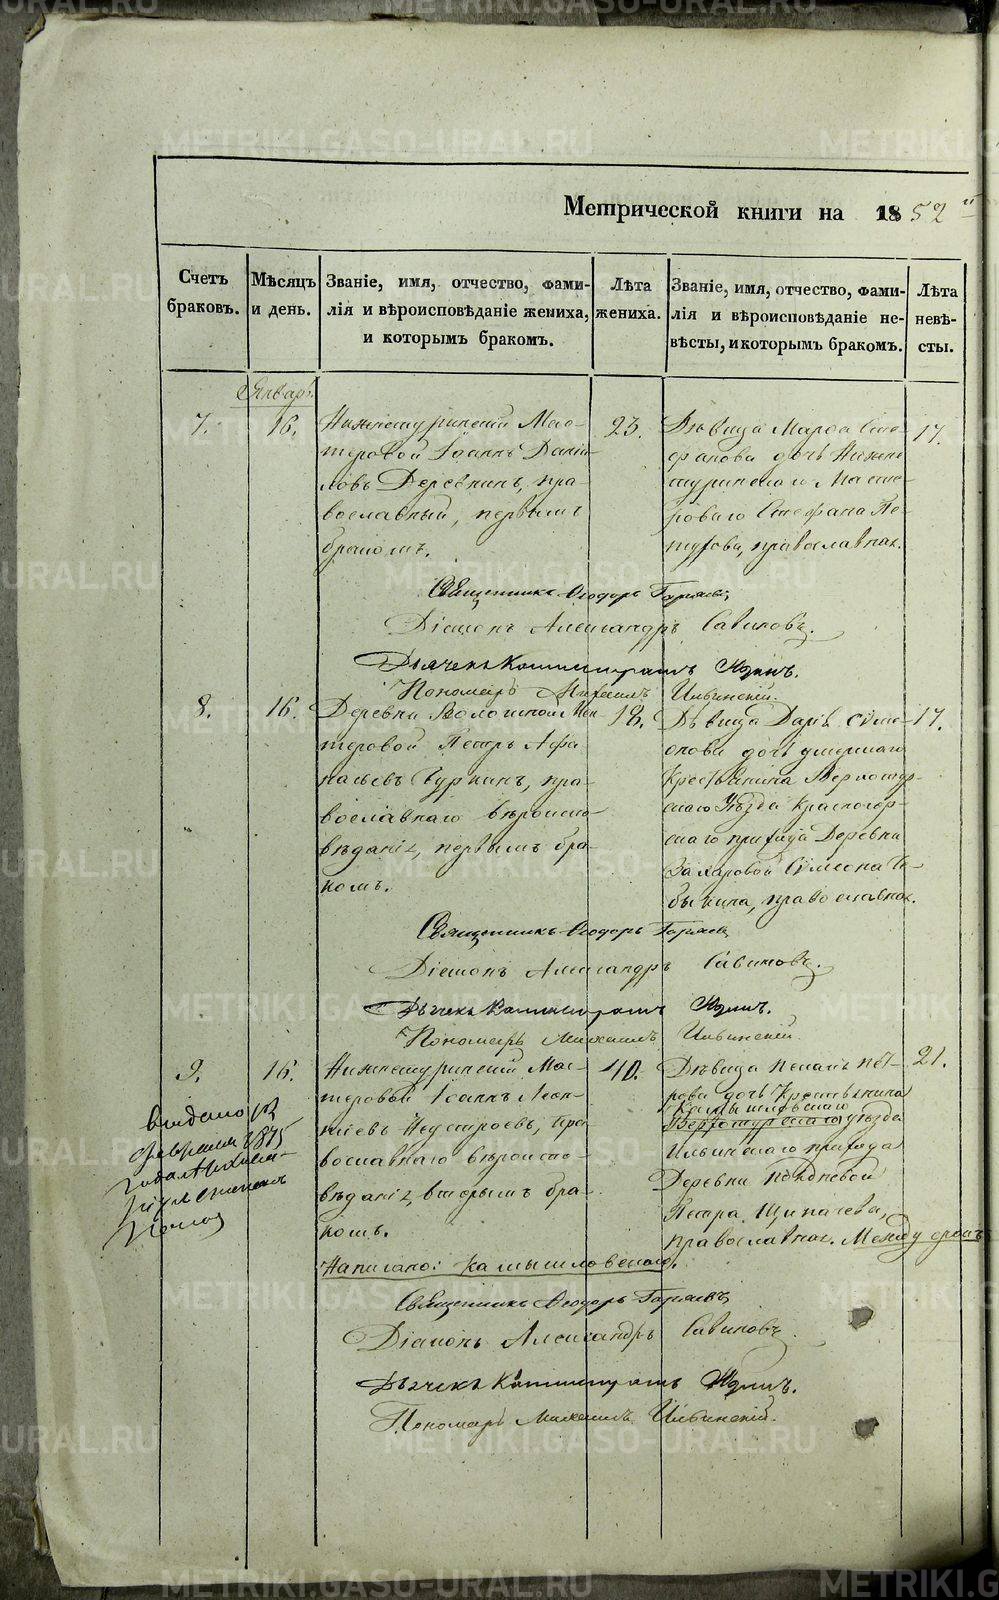 METRIKI.GASO-URAL.RU
Метрической книги на 1852й
Счетъ браковъ.
Мѣсяцъ и день.
Званіе, имя, отчество, фами-
лія и вѣроисповѣданіе жениха,
и которымъ бракомъ.
Лѣта жениха.
Званіе, имя, отчество, фами-
лія и вѣроисповѣданіе не-
вѣсты, и которымъ бракомъ.
Лѣта невѣ-
сты.
Январь
7.
16.
Нижнетуринскій Мас-
теровой Іоаннъ Даніи-
ловъ Деревнинъ, пра-
вославный, первымъ
бракомъ.
23.
Дѣвица Марѳа Сте-
фанова дочь Нижне
туринскаго Масте-
роваго Стефана Пе-
тухова, православная.
17.
Священникъ Ѳеодоръ Горяевъ
Діаконъ Александръ Савиновъ.
Дьячекъ Каллистратъ Юдинъ.
Пономарь Михаилъ Ильинскій.
8.
16.
Деревни Вологиной Мас-
теровой Петръ Афа
насьевъ Чуркинъ, пра-
вославнаго вѣроиспо-
вѣданія, первымъ бра-
комъ.
18.
Дѣвица Дарья Симе-
онова дочь умершаго
Крестьянина Верхотур-
скаго Уѣзда Красногор-
скаго прихода Деревни
Захаровой Симеона
православная.
17.
Священникъ Ѳеодоръ Горяевъ
Діаконъ Александръ Савиновъ.
Дьячекъ Каллистратъ Юдинъ.
Пономарь Михаилъ Ильинскій.
9.
16.
Нижнетуринскій Мас-
теровой Іоаннъ Леон-
тіевъ Пра
вославнаго вѣроиспо-
вѣданія, вторымъ бра-
комъ.
40.
Дѣвица Пет-
рова дочь Крестьянина
Камышловскаго
Верхотурскаго уѣзда
Ильинскаго прихода
Деревни
Петра Щипачева,
православная. Между строкъ
21.
Написано: Камышловскаго.
выдано
февраля 1875
года
Священникъ Ѳеодоръ Горяевъ
Діаконъ Александръ Савиновъ.
Дьячекъ Каллистратъ Юдинъ.
Пономарь Михаилъ Ильинскій.